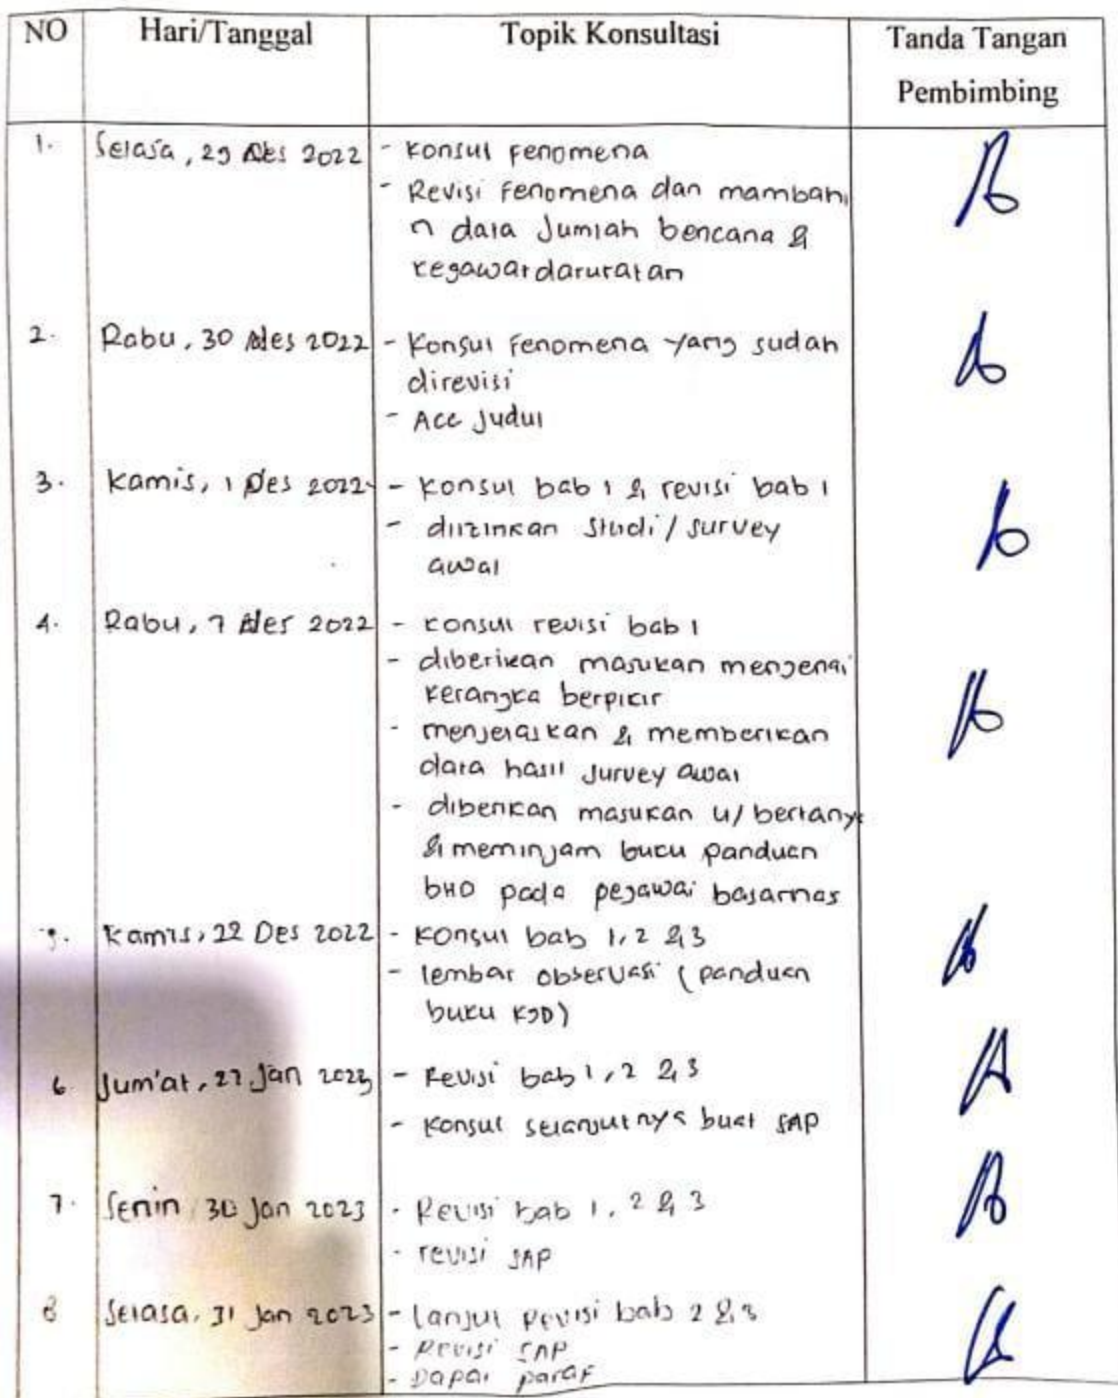 NO Hari/Tanggal Topik Konsultasi Tanda Tangan
Pembimbing
1. Selasa, 29 Des 2022 - Konsul Fenomena
- Revisi Fenomena dan mambahi
n data Jumlah bencana &
kegawatdaruratan
2. Rabu, 30 Des 2022 - Konsul Fenomena yang sudah
direvisi
- Acc Judul
3. Kamis, 1 Des 2022 - Konsul bab 1 & revisi bab 1
- diizinkan studi / survey
awal
4. Rabu, 7 Des 2022 - konsul revisi bab 1
- diberikan masukan mengenai
kerangka berpikir
- menjelaskan & memberikan
data hasil survey awal
- diberikan masukan u/ bertanya
& meminjam buku panduan
BHD pada pegawai basarnas
Kamis, 22 Des 2022 - Konsul bab 1, 2 & 3
- lembar observasi (panduan
buku KGD)
6 Jum'at, 27 Jan 2023 - Revisi bab 1, 2 & 3
- Konsul selanjutnya buat SAP
7. Senin 30 Jan 2023 - Revisi bab 1, 2 & 3
- revisi SAP
8 Selasa, 31 Jan 2023 - Lanjut revisi bab 2 & 3
- Revisi SAP
- Dapat paraf